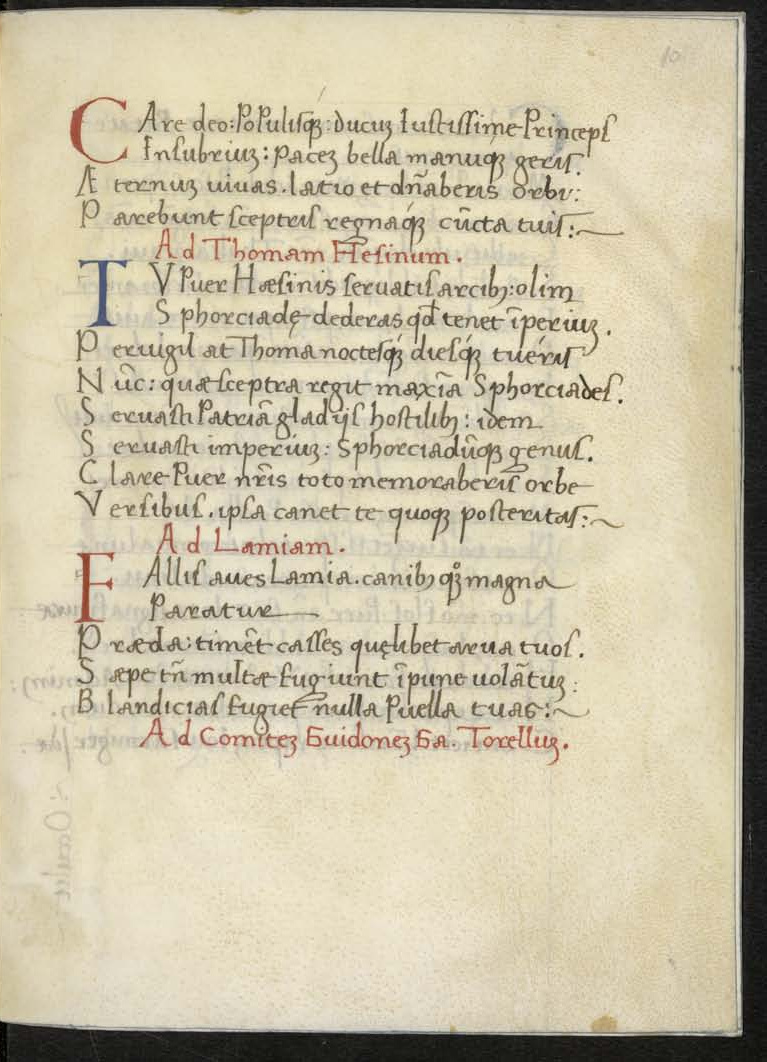 10
CAre deo: PoPulisq́ꝫ: ducuꝫ Iustissime Princeps
Insubriuꝫ: paceꝫ bella manuq́ꝫ geris.
Æ ternuꝫ uiuas. latio et dn̄aberis orbi:
P arebunt sceptris regnaq́ꝫ cūcta tuis:~
Ad Thomam Hesinum.
TV Puer Hæsinis seruatis arcibꝫ: olim
S phorciadę dederas qđ tenet īperiuꝫ.
P eruigil at Thomá noctesq́ꝫ diesq́ꝫ tuéris
N ūc: quæ sceptra regit maxīa Sphorciades.
S eruasti Patriā gladijs hostilibꝫ: idem
S eruasti imperiuꝫ: Sphorciadūqꝫ genus.
C lare Puer nr̄is toto memoraberis orbe
V ersibus. ipsa canet te quoqꝫ posteritas:~
Ad Lamiam.
FAllis aues Lamia. canibꝫ qꝫ magna
Paratur
P ræda: timēt casses quęlibet arua tuos.
S æpe tn̄ multæ fugiunt īpune uolātuꝫ:
B landicias fugiet nulla Puella tuas:~
Ad Comiteꝫ Guidoneꝫ Ga. Torelluꝫ.